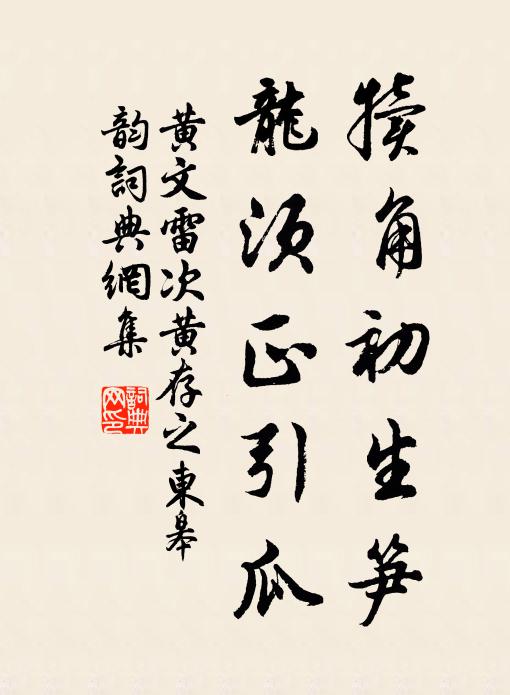 犢角初生笋
龍須正引瓜
黄文雷次黄存之東皋
韵詞典網集
詞典网印